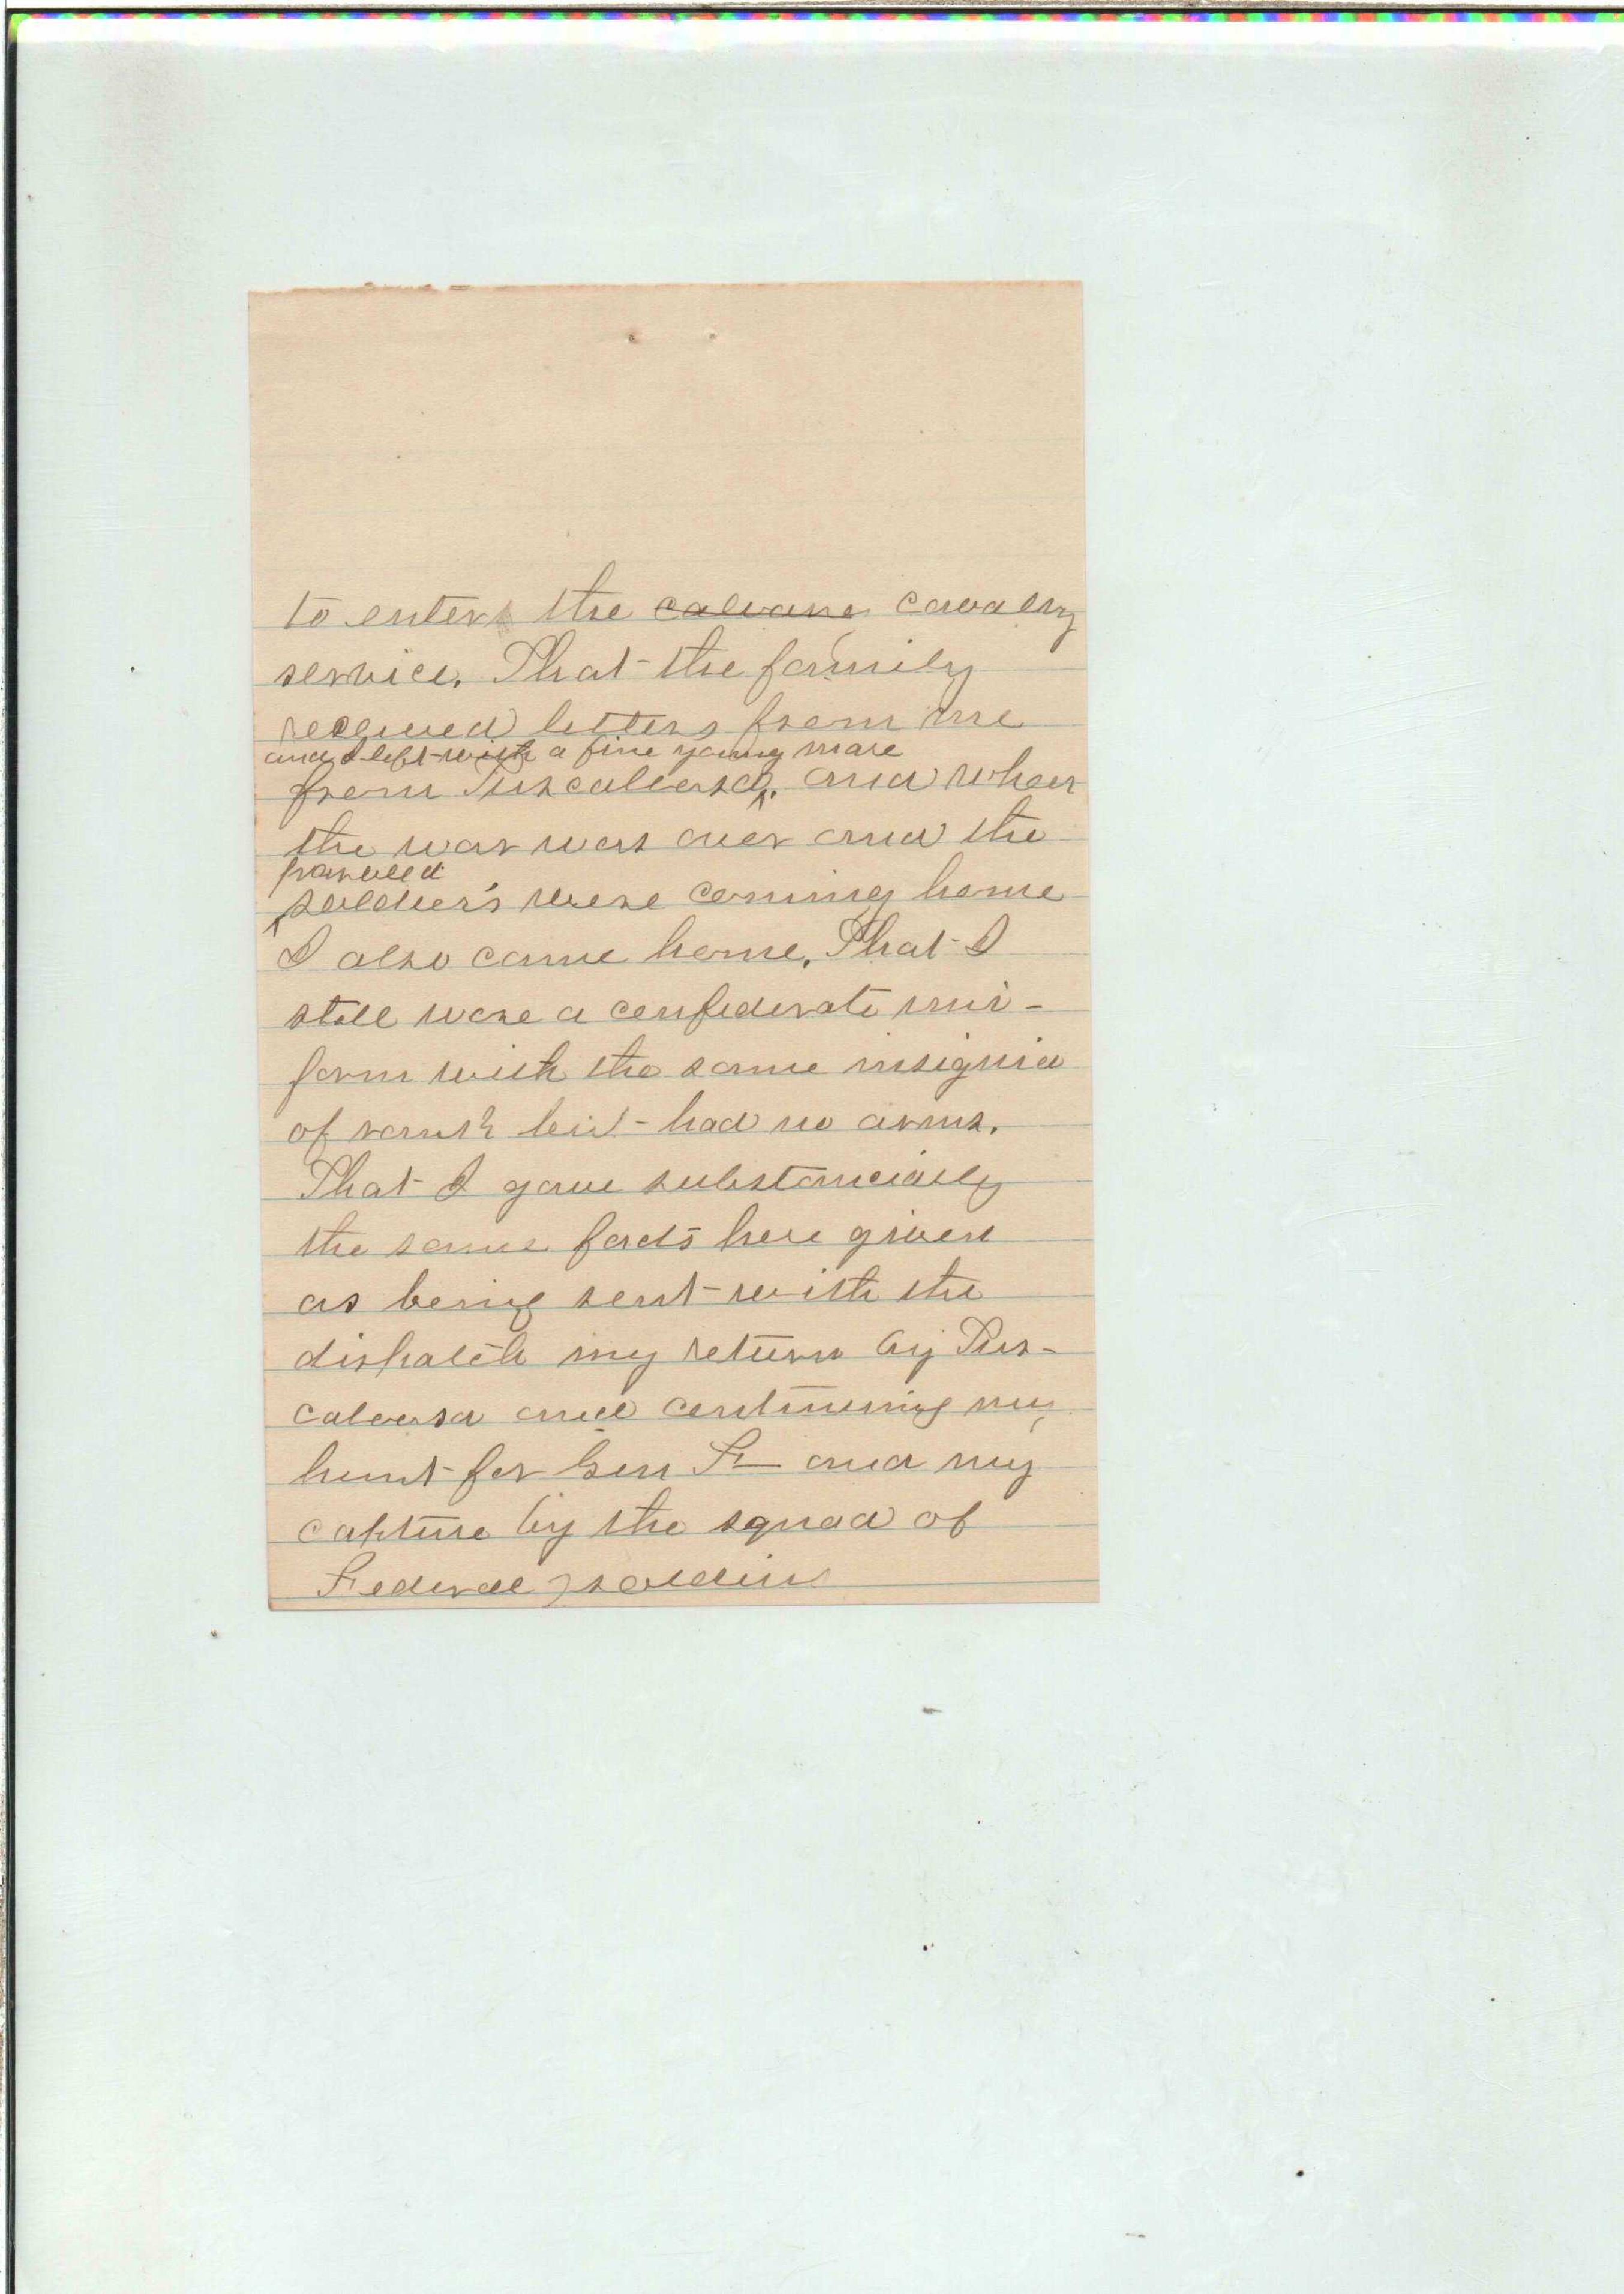 to enter the calvane cavalry
service. That the family
received letters from me
and I left with a fine young mare
from Tuscaloosa. and when
the war was over and the
paroled
soldier's were coming home
I also came home. That I
still wore a confederate uni-
form with the same insignia
of rank but had no arms.
That I gave substancially
the same facts here given
as being sent with the
dispatch my return by Tus-
caloosa and continuing my
hunt for Gen F— and my
capture by the squad of
Federal soldiers